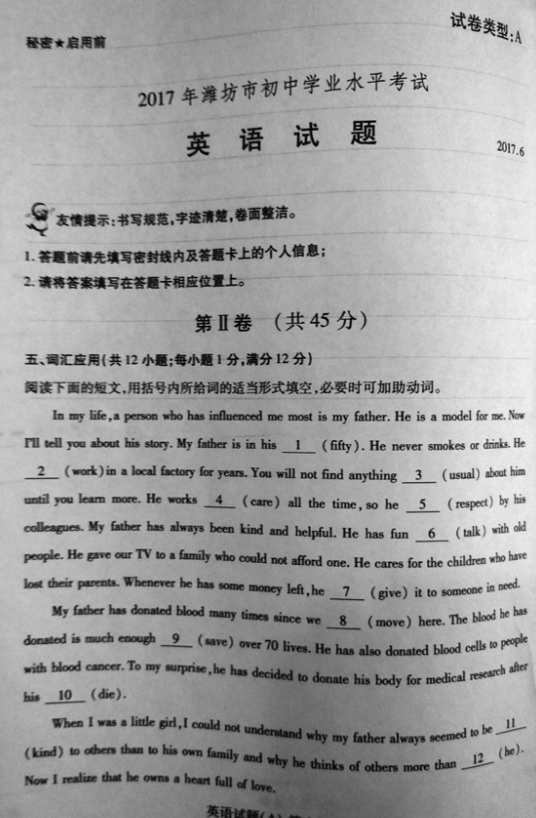 试卷类型:A
秘密★启用前
2017 年潍坊市初中学业水平考试
英 语 试 题
2017.6
友情提示:书写规范,字迹清楚,卷面整洁。
1. 答题前请先填写密封线内及答题卡上的个人信息;
2. 请将答案填写在答题卡相应位置上。
第Ⅱ卷 (共 45 分)
五、词汇应用(共 12 小题;每小题 1 分,满分 12 分)
阅读下面的短文,用括号内所给词的适当形式填空,必要时可加助动词。
In my life,a person who has influenced me most is my father. He is a model for me. Now
I'll tell you about his story. My father is in his 1 (fifty). He never smokes or drinks. He
2 (work)in a local factory for years. You will not find anything 3 (usual) about him
until you learn more. He works 4 (care) all the time,so he 5 (respect) by his
colleagues. My father has always been kind and helpful. He has fun 6 (talk) with old
people. He gave our TV to a family who could not afford one. He cares for the children who have
lost their parents. Whenever he has some money left,he 7 (give) it to someone in need.
My father has donated blood many times since we 8 (move) here. The blood he has
donated is much enough 9 (save) over 70 lives. He has also donated blood cells to people
with blood cancer. To my surprise,he has decided to donate his body for medical research after
his 10 (die).
When I was a little girl,I could not understand why my father always seemed to be 11
(kind) to others than to his own family and why he thinks of others more than 12 (he).
Now I realize that he owns a heart full of love.
英语试题(A)